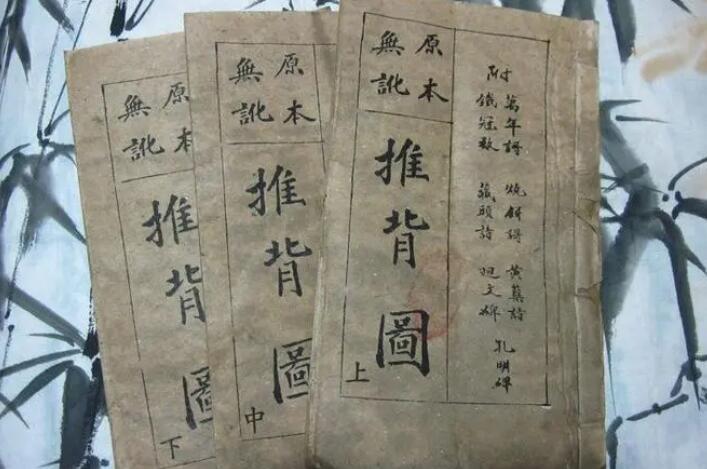 附
萬年謌 燒餅謌 黃蘗詩 孔明碑
鐵冠数 藏頭詩 廻文碑
原本
無訛
推背圖
上
原本
無訛
推背圖
中
原本
無訛
推背圖
下